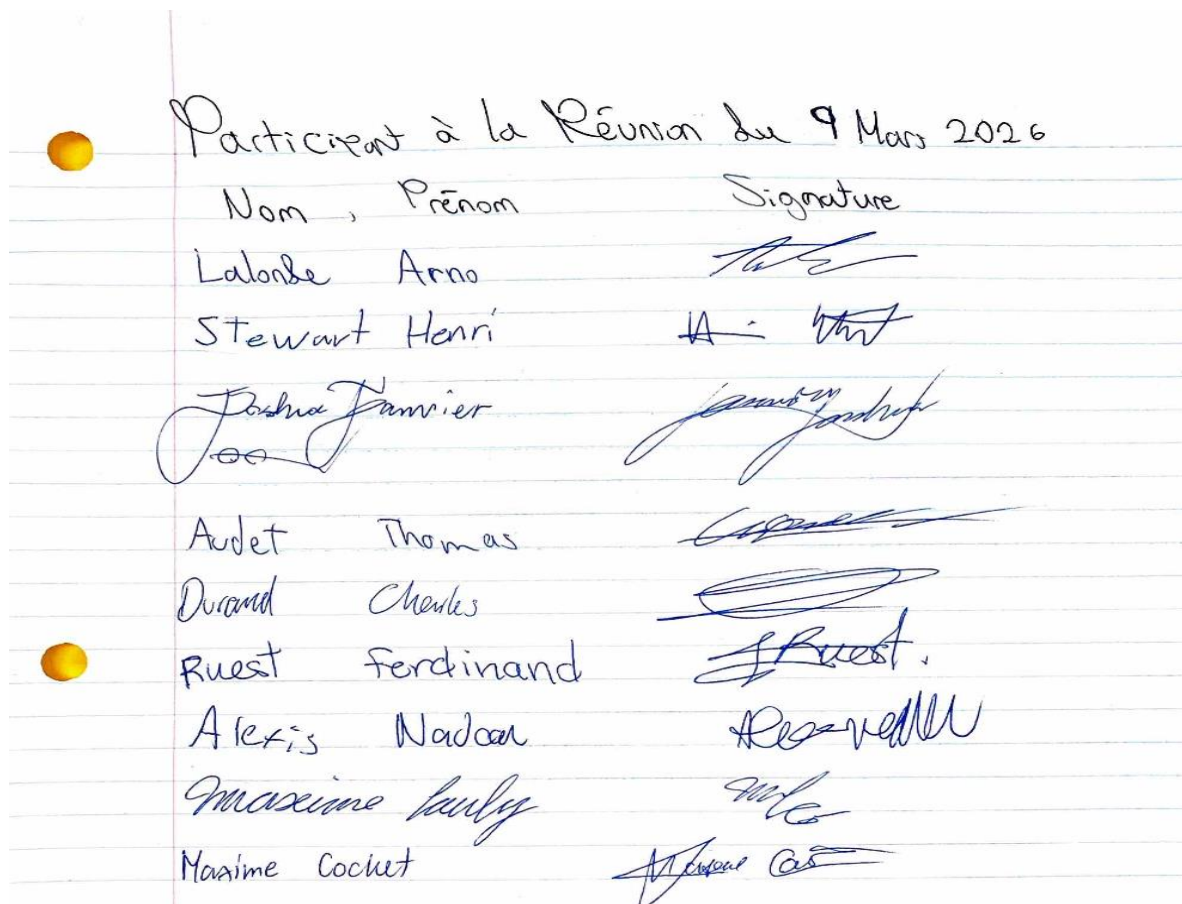 Participant à la Réunion du 9 Mars 2026
Nom, Prénom Signature
Lalonde Arno
Stewart Henri
Joshua Janvier
Audet Thomas
Durand Charles
Ruest Ferdinand F Ruest.
Alexis Nadeau
Maxime Pauly
Maxime Cochet Maxime